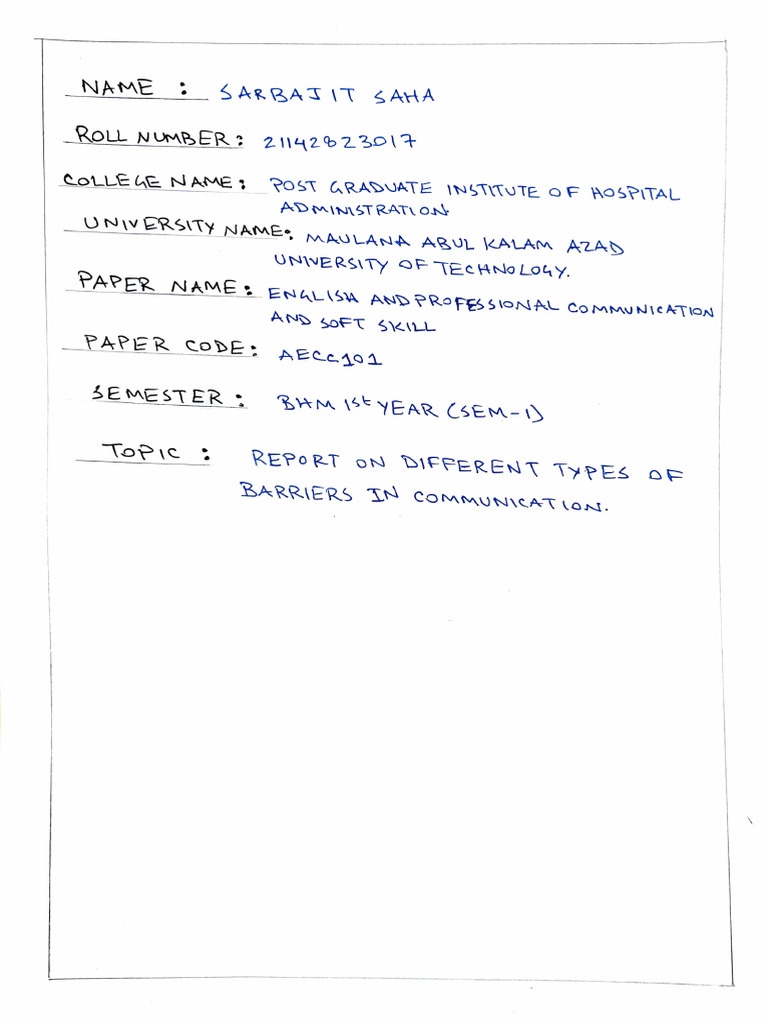 NAME : SARBAJIT SAHA
ROLL NUMBER: 21142823017
COLLEGE NAME: POST GRADUATE INSTITUTE OF HOSPITAL
ADMINISTRATION
UNIVERSITY NAME: MAULANA ABUL KALAM AZAD
UNIVERSITY OF TECHNOLOGY.
PAPER NAME: ENGLISH AND PROFESSIONAL COMMUNICATION
AND SOFT SKILL
PAPER CODE: AECC101
SEMESTER: BHM 1st YEAR (SEM-1)
TOPIC : REPORT ON DIFFERENT TYPES OF
BARRIERS IN COMMUNICATION.